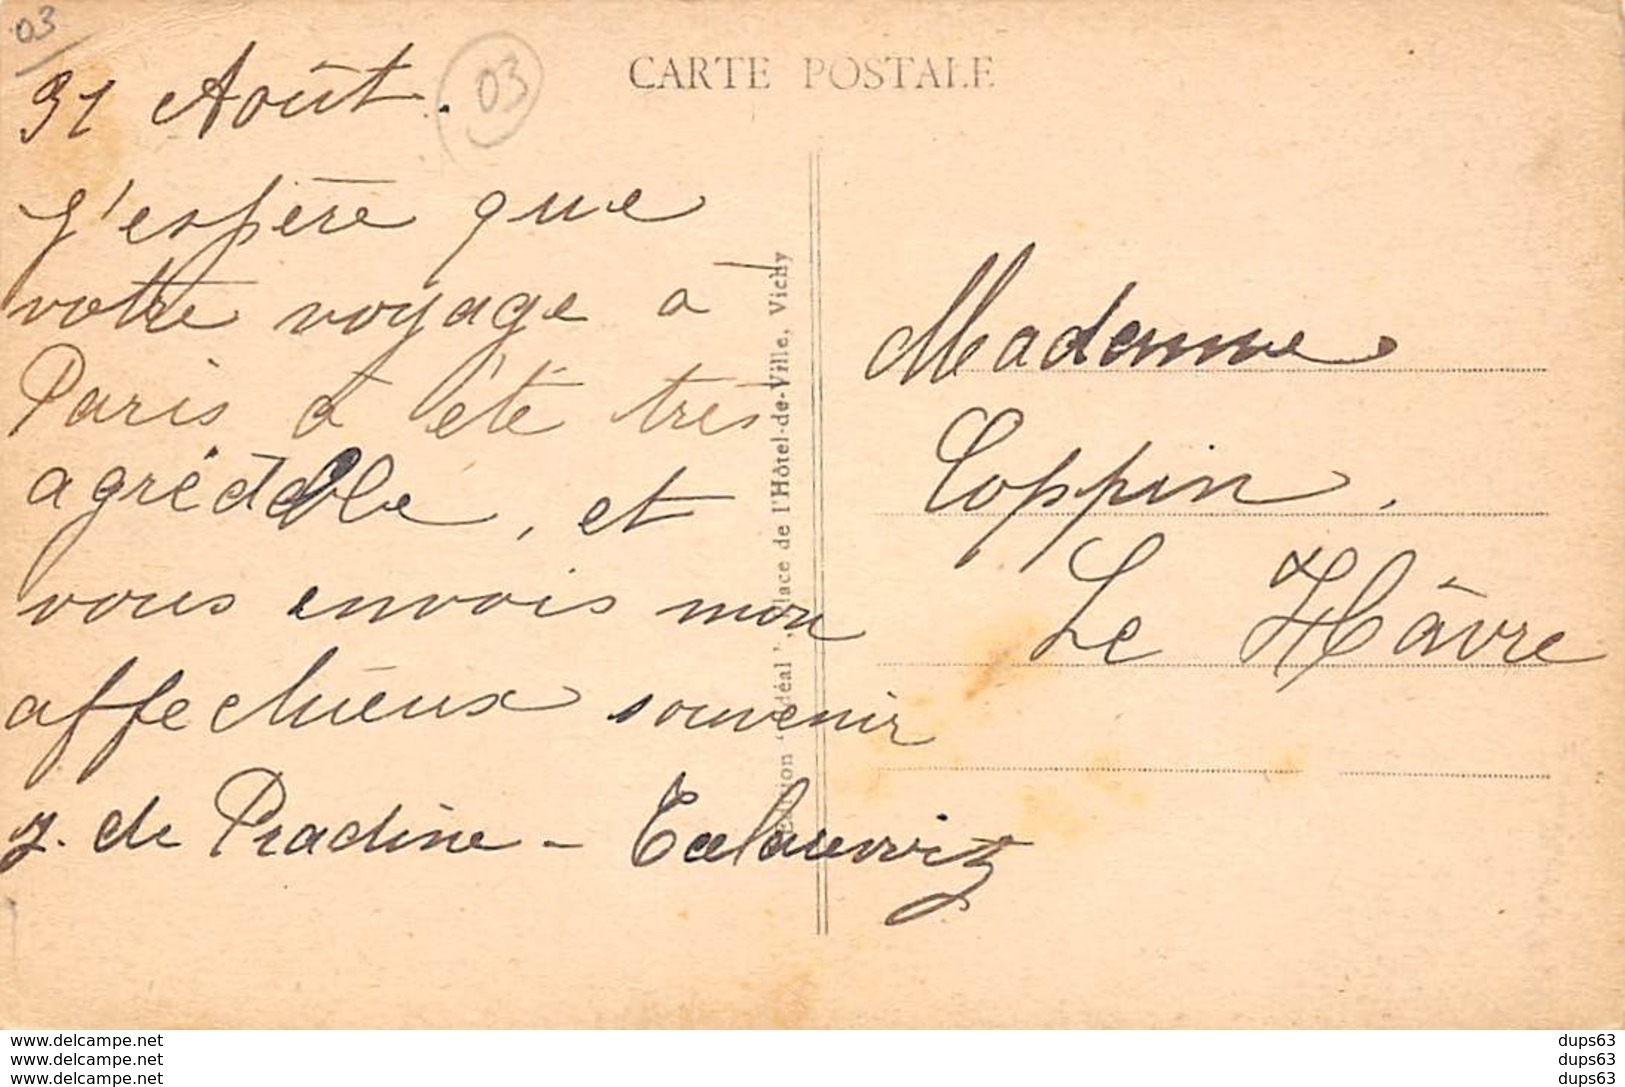 03
03
CARTE POSTALE
31 Août.
J'espère que
votre voyage à
Paris à été très
agréable, et
vous envois mon
affectueux souvenir
J. de Pradine -
Madame
Coppin,
Le Hâvre
Edition "Idéal", place de l'Hôtel-de-Ville, Vichy
www.delcampe.net
www.delcampe.net
www.delcampe.net
dups63
dups63
dups63